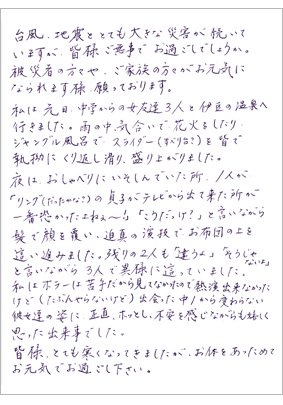 台風、地震ととても大きな災害が続いて
いますが、皆様ご無事でお過ごしでしょうか。
被災者の方々や、ご家族の方々がお元気に
なられます様、願っております。
私は先日、中学からの女友達3人と伊豆の温泉へ
行きました。雨の中、気合いで花火をしたり、
ジャングル風呂でスライダー(すべり台?)を皆で
執拗にくり返し滑り、盛り上がりました。
夜は、おしゃべりにいそしんでいた所、1人が
「リング(だったかな?)の貞子がテレビから出て来た所が
一番恐かったよねぇ〜!」「こうだっけ?」と言いながら
髪で顔を覆い、迫真の演技でお布団の上を
這い進みました。残りの2人も「違うよ」「そうじゃないよ」
と言いながら3人で黙々様に這っていました。
私はホラーは苦手だから見てなかったので熱演出来なかった
けど(たぶんやらないけど)出会った中1から変わらない
彼女達の姿に正直、ホッとし、不安を感じながらも嬉しく
思った出来事でした。
皆様、とても寒くなってきましたが、お体をあっためて
お元気でお過ごし下さい。